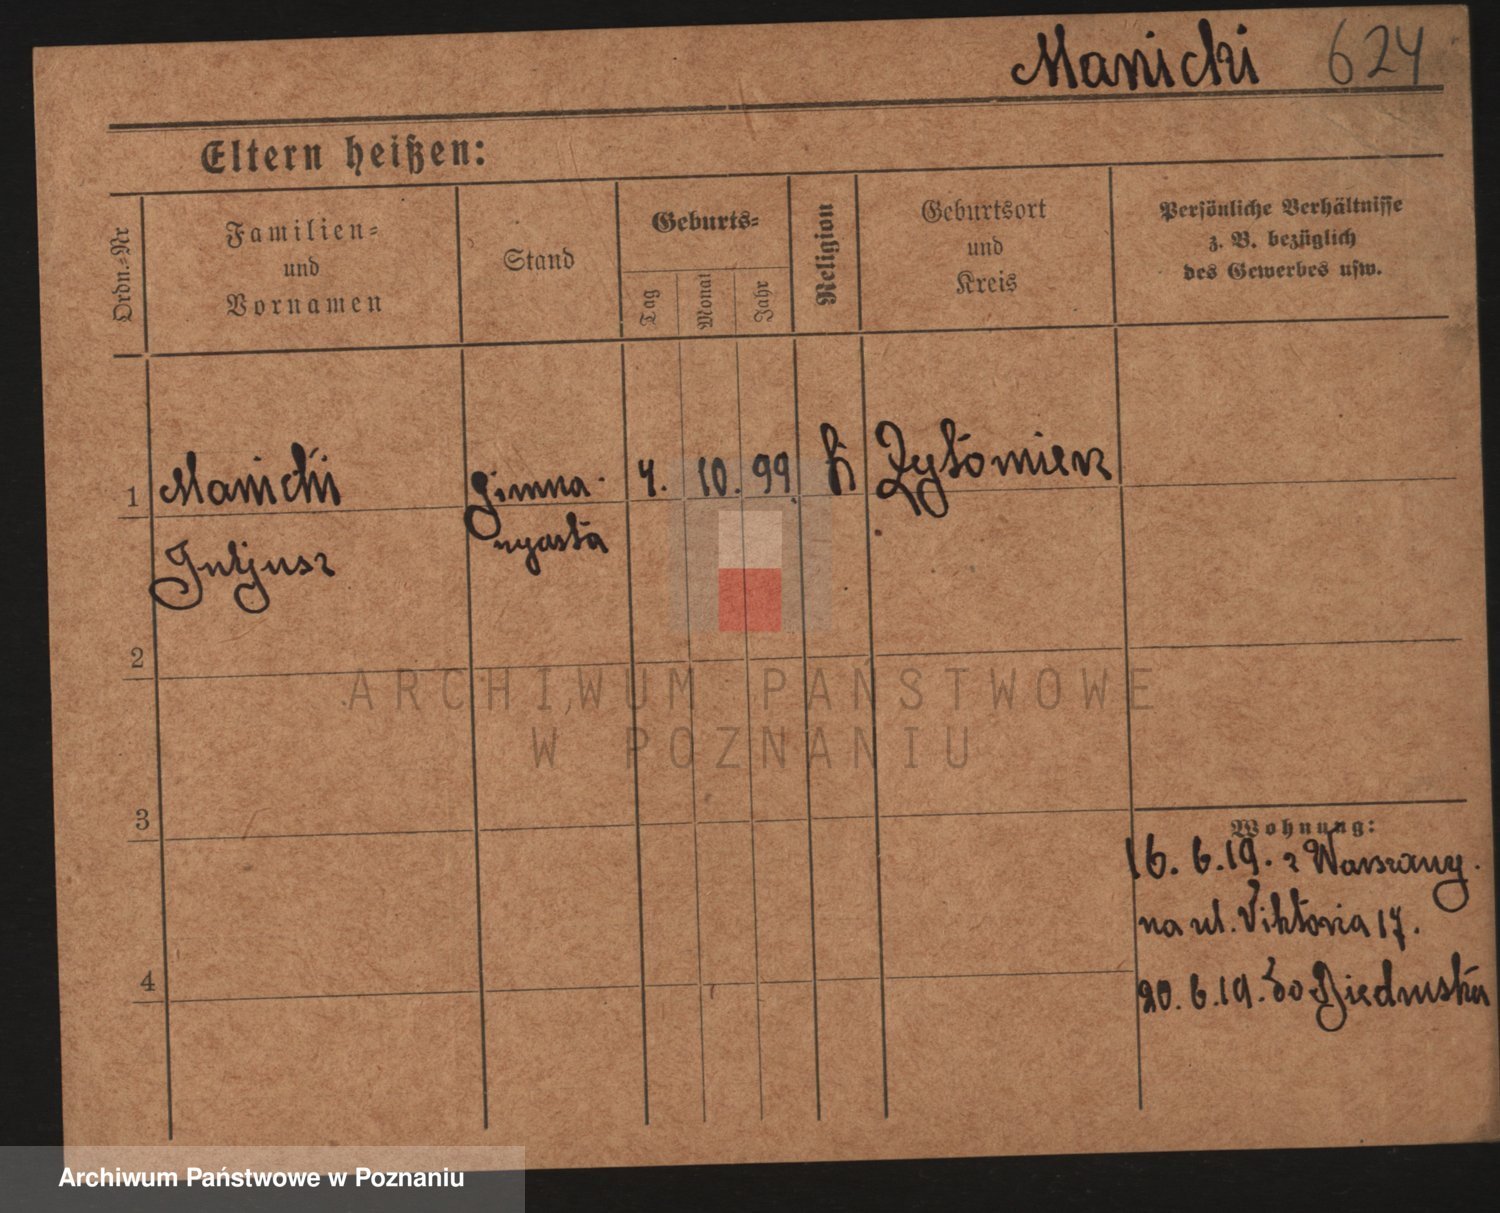 Manicki 624
Eltern heißen:
Ordn.-Nr
Familien-
und
Vornamen
Stand
Geburts-
Tag
Monat
Jahr
Religion
Geburtsort
und
Kreis
Persönliche Verhältnisse
z. B. bezüglich
des Gewerbes usw.
1 Manicki Gimna- 4. 10. 99. K Zytomierz
Juljusz nyasta
2
ARCHIWUM PAŃSTWOWE
W POZNANIU
3
Wohnung:
16. 6. 19. z Warszawy.
na ul. Viktoria 17.
4
20. 6. 19. do Biedruska
Archiwum Państwowe w Poznaniu